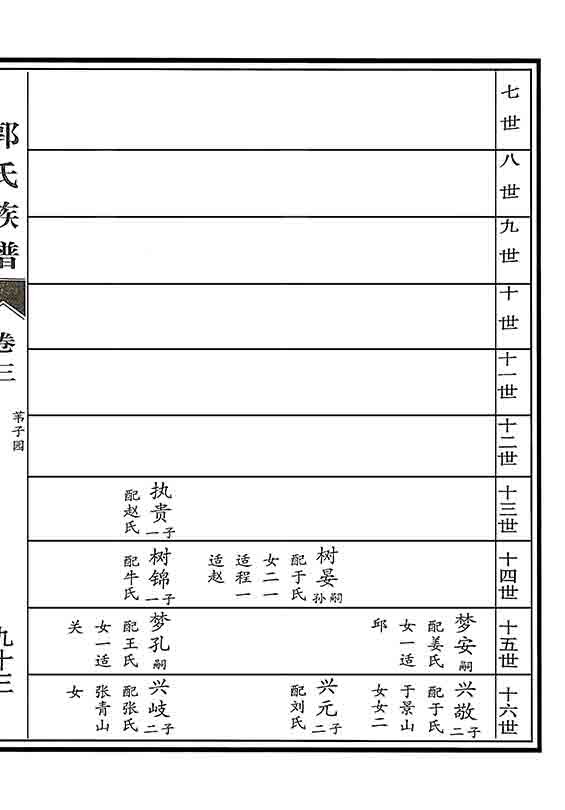 七世
八世
九世
十世
十一世
十二世
十三世
执贵一子
配赵氏
十四世
树晏嗣孙
配于氏
女二一
适程一
适赵
树锦一子
配牛氏
十五世
梦安嗣
配姜氏
女一适
邱
梦孔嗣
配王氏
女一适
关
十六世
兴敬二子
配于氏
于景山
女女二
兴元二子
配刘氏
兴岐二子
配张氏
张青山
女
郭氏族谱
卷三
苇子园
九十三